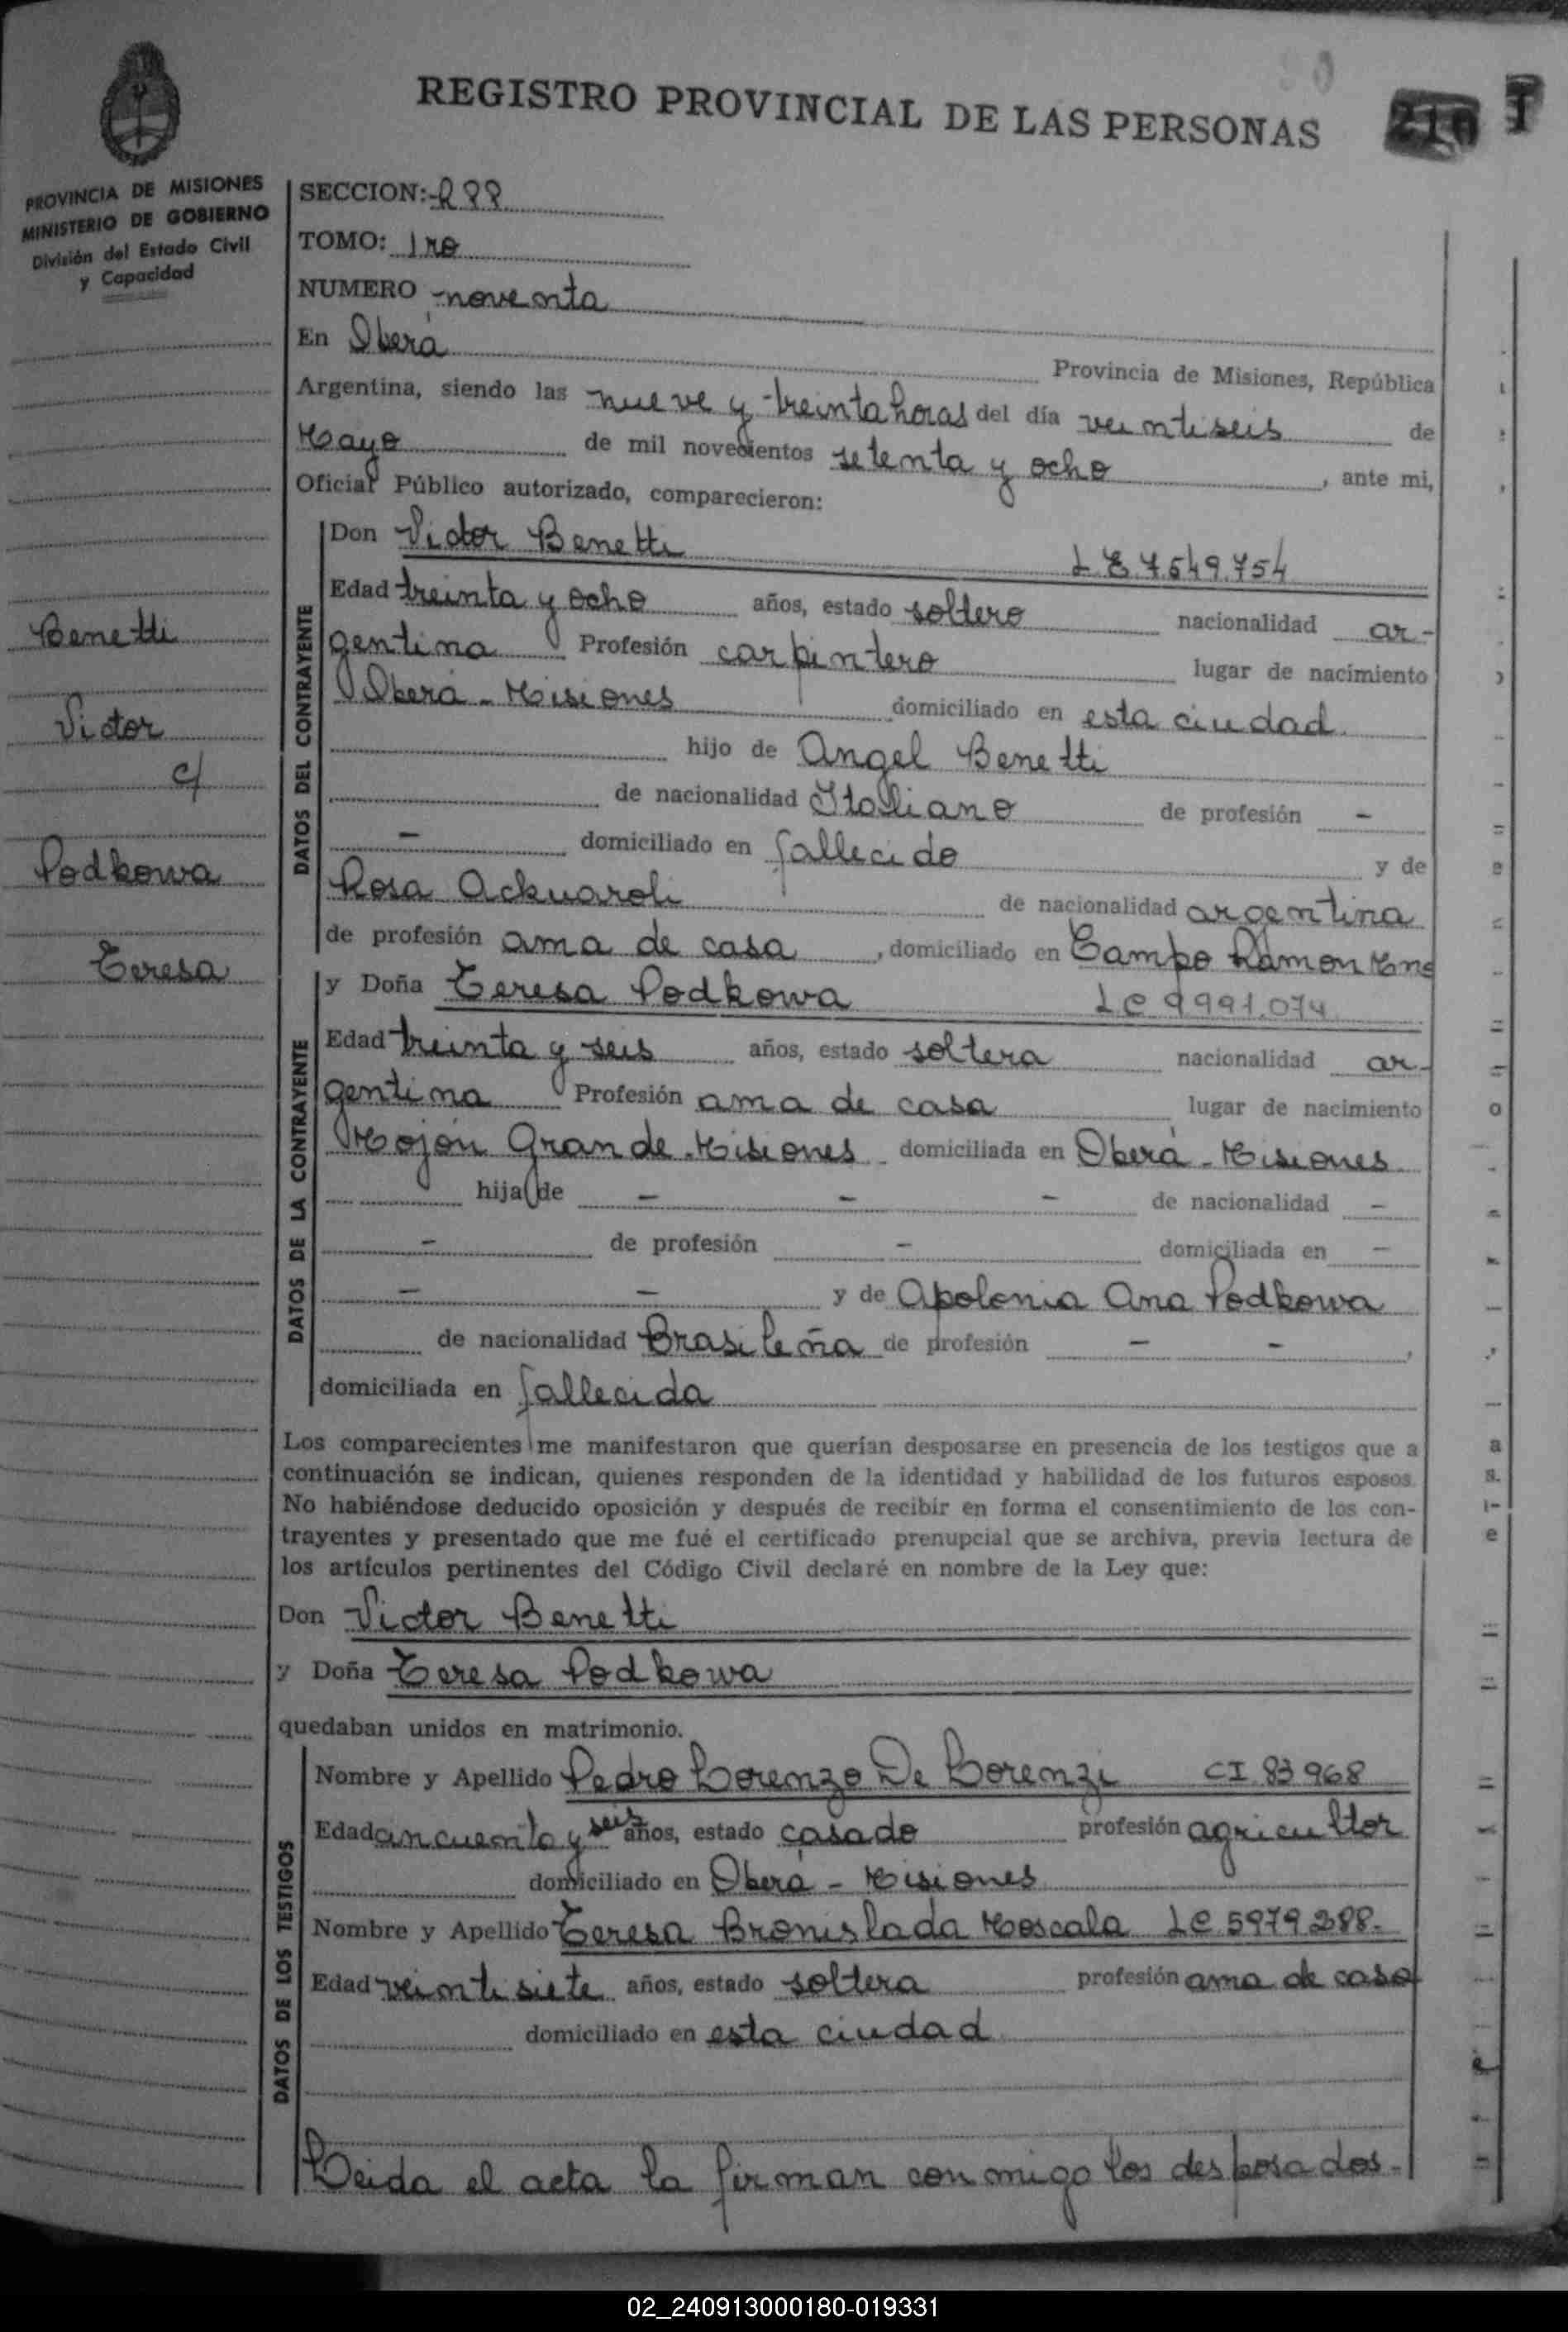 REGISTRO PROVINCIAL DE LAS PERSONAS
PROVINCIA DE MISIONES
MINISTERIO DE GOBIERNO
División del Estado Civil
y Capacidad
Benetti
Victor
c/
Podkowa
Teresa
SECCION:
TOMO: 1ro
NUMERO noventa
En Oberá Provincia de Misiones, República
Argentina, siendo las nueve y treinta horas del día veintiseis de
Mayo de mil novecientos setenta y ocho, ante mi,
Oficial Público autorizado, comparecieron:
DATOS DEL CONTRAYENTE
Don Victor Benetti LE 7.549.754
Edad treinta y ocho años, estado soltero nacionalidad ar-
gentina Profesión carpintero lugar de nacimiento
Oberá - Misiones domiciliado en esta ciudad.
hijo de Angel Benetti
de nacionalidad Italiano de profesión -
- domiciliado en fallecido y de
Rosa Ackuaroli de nacionalidad argentina
de profesión ama de casa, domiciliado en Campo Ramon Mnes
DATOS DE LA CONTRAYENTE
y Doña Teresa Podkowa LC 9991.074
Edad treinta y seis años, estado soltera nacionalidad ar-
gentina Profesión ama de casa lugar de nacimiento
Mojón Grande - Misiones domiciliada en Oberá - Misiones
hija de - - - de nacionalidad -
- de profesión - domiciliada en -
- - y de Apolonia Ana Podkowa
de nacionalidad Brasileña de profesión - - ,
domiciliada en fallecida
Los comparecientes me manifestaron que querían desposarse en presencia de los testigos que a
continuación se indican, quienes responden de la identidad y habilidad de los futuros esposos.
No habiéndose deducido oposición y después de recibir en forma el consentimiento de los con-
trayentes y presentado que me fué el certificado prenupcial que se archiva, previa lectura de
los artículos pertinentes del Código Civil declaré en nombre de la Ley que:
Don Victor Benetti
y Doña Teresa Podkowa
quedaban unidos en matrimonio.
DATOS DE LOS TESTIGOS
Nombre y Apellido Pedro Lorenzo De Lorenzi CI 83968
Edad cincuenta y seis años, estado casado profesión agricultor
domiciliado en Oberá - Misiones
Nombre y Apellido Teresa Bronislada Moscala LC 5979288.-
Edad veintisiete años, estado soltera profesión ama de casa
domiciliado en esta ciudad
Leida el acta la firman conmigo los desposados.-
02_240913000180-019331